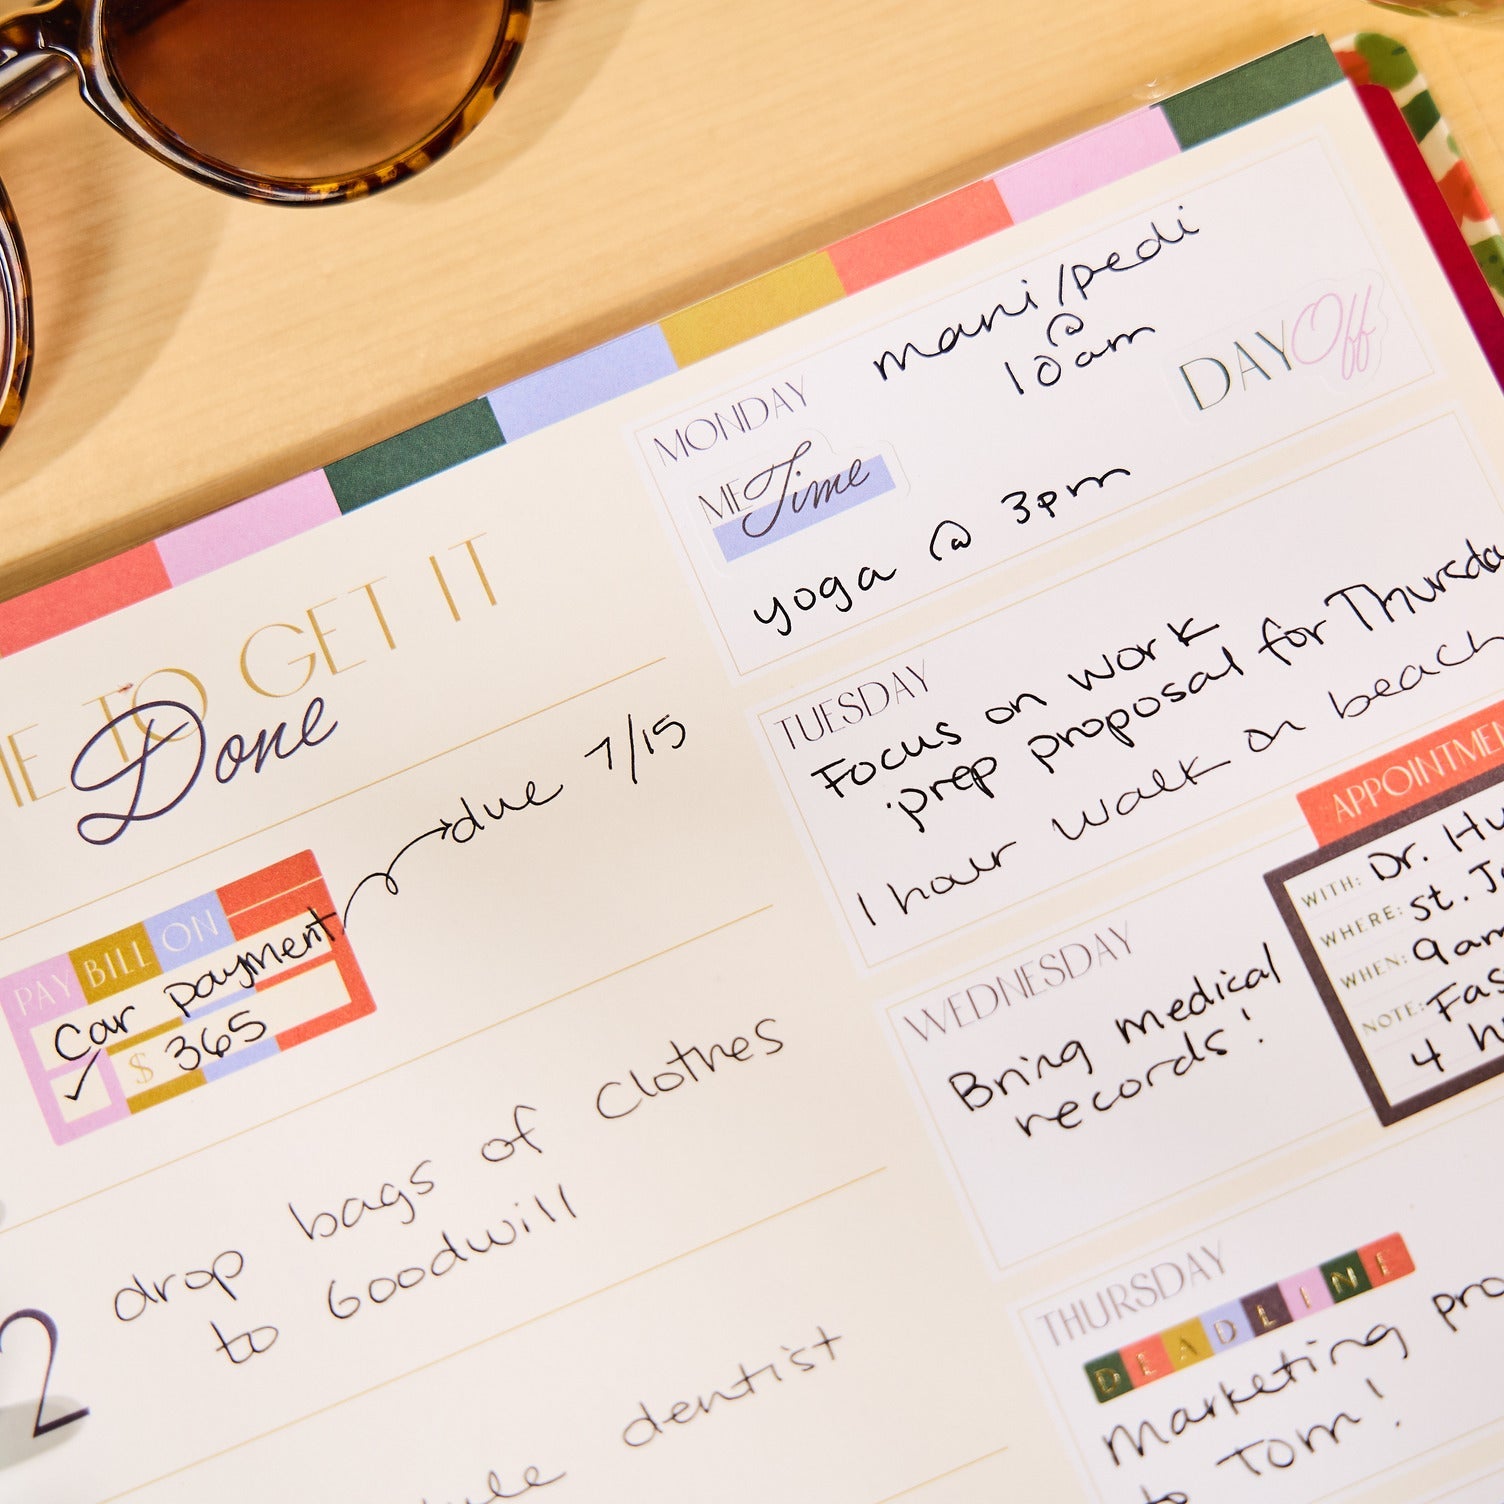 TO GET IT
Done
PAY BILL ON
Car payment
✓ $ 365
due 7/15
2
drop bags of clothes
to Goodwill
dentist
MONDAY
mani/pedi
@
10am
DAY Off
ME Time
yoga @ 3pm
TUESDAY
Focus on work
prep proposal for
1 hour walk on beach
WEDNESDAY
Bring medical
records!
WITH: Dr.
WHERE: St.
WHEN: 9am
NOTE:
4
THURSDAY
DEADLINE
Marketing
to Tom!